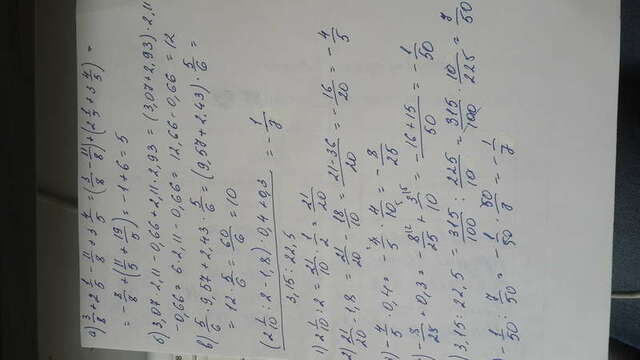 а) 3/8 + 2 1/5 - 11/8 + 3 4/5 = (3/8 - 11/8) + (2 1/5 + 3 4/5) =
= - 8/8 + (11/5 + 19/5) = -1 + 6 = 5
б) 3,07 · 2,11 - 0,66 + 2,11 · 2,93 = (3,07 + 2,93) · 2,11
- 0,66 = 6 · 2,11 - 0,66 = 12,66 - 0,66 = 12
в) 5/6 · 9,57 + 2,43 · 5/6 = (9,57 + 2,43) · 5/6 =
= 12 · 5/6 = 60/6 = 10
(2 1/10 : 2 - 1,8) · 0,4 + 0,3 = - 1/7
3,15 : 22,5
1) 2 1/10 : 2 = 21/10 · 1/2 = 21/20
2) 21/20 - 1,8 = 21/20 - 18/10 = 21-36/20 = - 16/20 = - 4/5
- 4/5 · 0,4 = - 4/5 · 4/10 = - 8/25
- 8/25 + 0,3 = - 8/25 + 3/10 = - 16+15/50 = - 1/50
3,15 : 22,5 = 315/100 : 225/10 = 315/100 · 10/225 = 7/50
1/50 : 7/50 = - 1/50 · 50/7 = - 1/7